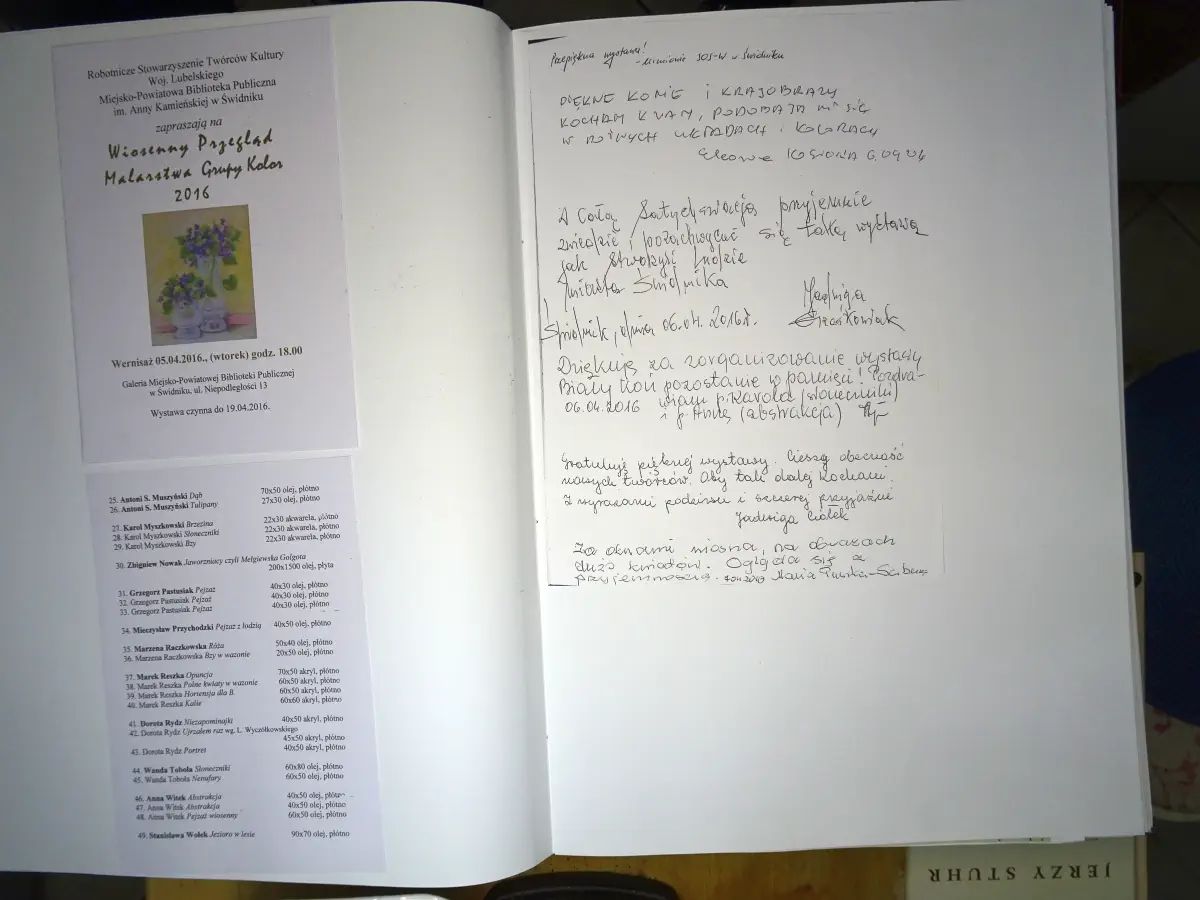 Robotnicze Stowarzyszenie Twórców Kultury
Woj. Lubelskiego
Miejsko-Powiatowa Biblioteka Publiczna
im. Anny Kamieńskiej w Świdniku
zapraszają na
Wiosenny Przegląd
Malarstwa Grupy Kolor
2016
Wernisaż 05.04.2016., (wtorek) godz. 18.00
Galeria Miejsko-Powiatowej Biblioteki Publicznej
w Świdniku, ul. Niepodległości 13
Wystawa czynna do 19.04.2016.
25. Antoni S. Muszyński Dąb 70x50 olej, płótno
26. Antoni S. Muszyński Tulipany 27x30 olej, płótno
27. Karol Myszkowski Brzezina 22x30 akwarela, płótno
28. Karol Myszkowski Słoneczniki 22x30 akwarela, płótno
29. Karol Myszkowski Bzy 22x30 akwarela, płótno
30. Zbigniew Nowak Jaworzniacy czyli Mełgiewska Golgota
200x1500 olej, płyta
31. Grzegorz Pastusiak Pejzaż 40x30 olej, płótno
32. Grzegorz Pastusiak Pejzaż 40x30 olej, płótno
33. Grzegorz Pastusiak Pejzaż 40x30 olej, płótno
34. Mieczysław Przychodzki Pejzaż z łodzią 40x50 olej, płótno
35. Marzena Raczkowska Róża 50x40 olej, płótno
36. Marzena Raczkowska Bzy w wazonie 20x50 olej, płótno
37. Marek Reszka Opuncja 70x50 akryl, płótno
38. Marek Reszka Polne kwiaty w wazonie 60x50 akryl, płótno
39. Marek Reszka Hortensja dla B. 60x50 akryl, płótno
40. Marek Reszka Kalie 60x60 akryl, płótno
41. Dorota Rydz Niezapominajki 40x50 akryl, płótno
42. Dorota Rydz Ujrzałem raz wg. L. Wyczółkowskiego
45x50 akryl, płótno
43. Dorota Rydz Portret 40x50 akryl, płótno
44. Wanda Tobola Słoneczniki 60x80 olej, płótno
45. Wanda Tobola Nenufary 60x50 olej, płótno
46. Anna Witek Abstrakcja 40x50 olej, płótno
47. Anna Witek Abstrakcja 40x50 olej, płótno
48. Anna Witek Pejzaż wiosenny 60x50 olej, płótno
49. Stanisława Wołek Jezioro w lesie 90x70 olej, płótno
Przepiękna wystawa!
- uczniowie SOS-W w Świdniku
PIĘKNE KONIE I KRAJOBRAZY
KOCHAM KWIATY, PODOBAJĄ MI SIĘ
W RÓŻNYCH UKŁADACH I KOLORACH
6.04.06
Z Całą Satysfakcją przyjemnie
zwiedzić i pozachwycać się taką wystawą
jak stworzyli ludzie
miasta Świdnika
Jadwiga
Świdnik, dnia 06.04.2016r.
Dziękuję za zorganizowanie wystawy
Biały koń pozostanie w pamięci! Pozdra-
06.04.2016 wiam p. Karola (słoneczniki)
i p. Annę (abstrakcja)
Gratuluję pięknej wystawy. Cieszę obecność
nowych twórców. Aby tak dalej Kochani.
Z wyrazami podziwu i szczerej przyjaźni
Jadwiga Ciołek
Za oknami wiosna, na obrazach
dużo kwiatów. Ogląda się z
przyjemnością. Maria
JERZY STUHR